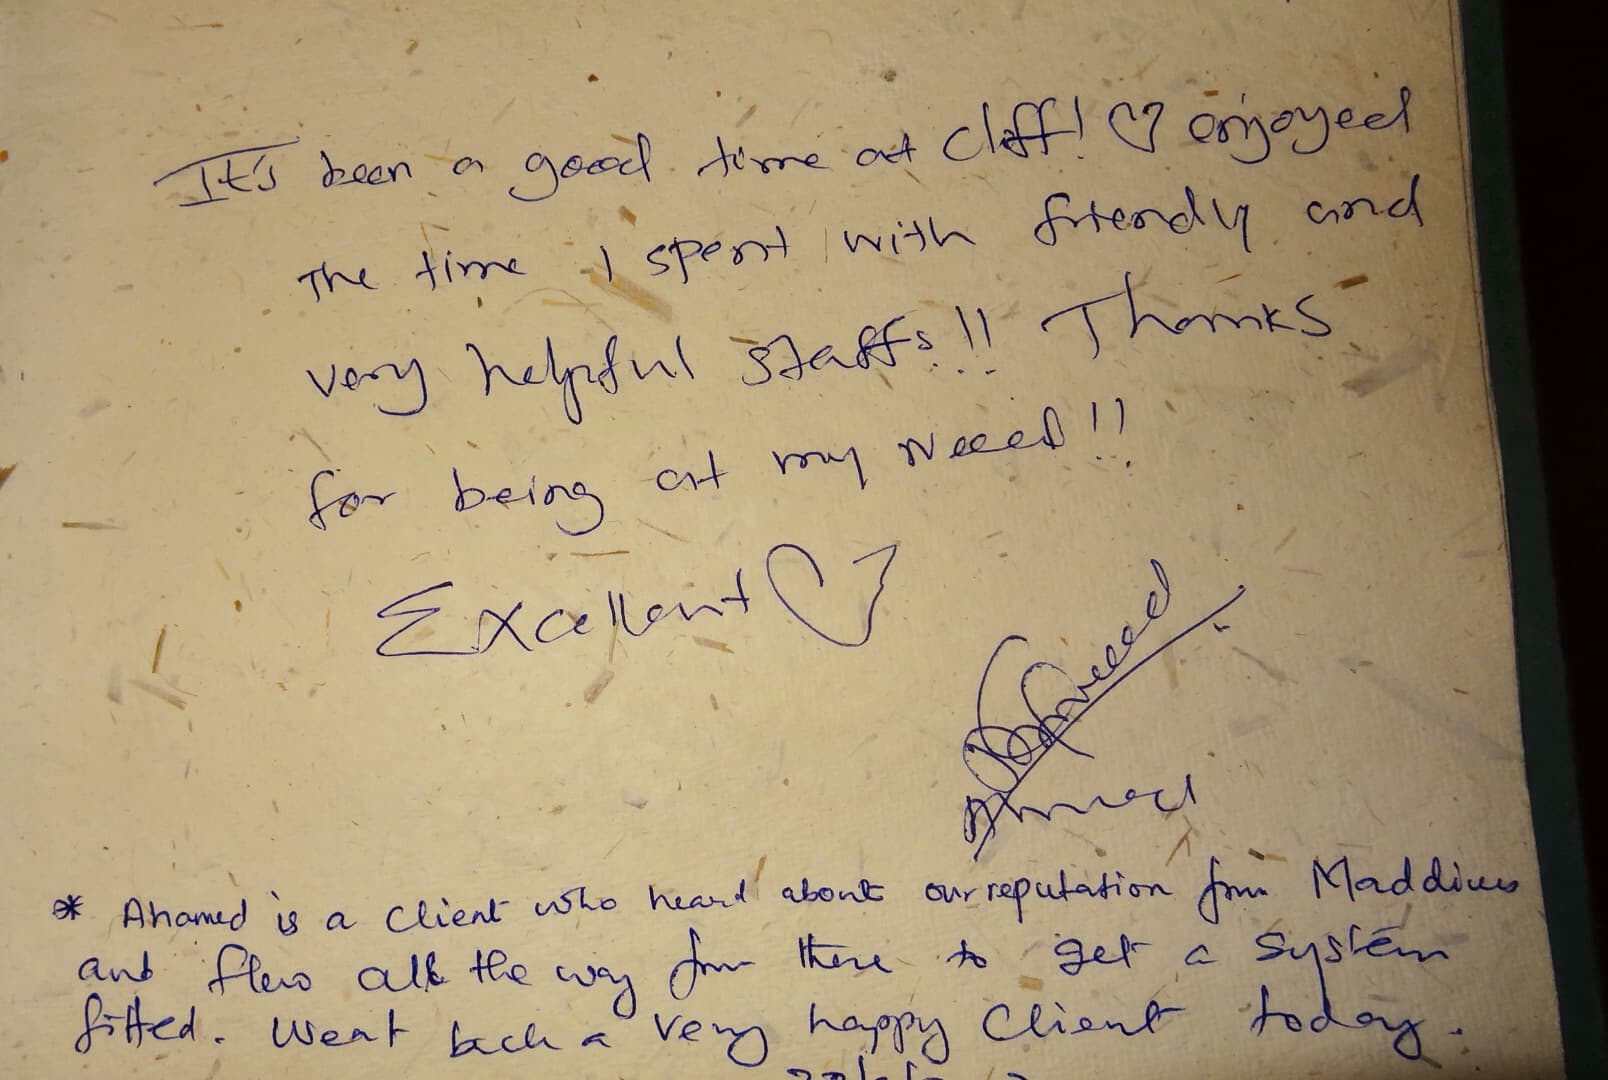 It's been a good time at Cliff! ♡ enjoyed
The time I spent with friendly and
very helpful staffs!!! Thanks
for being at my Neeed!!
Excellent ♡
Ahmed
* Ahamed is a client who heard about our reputation from Maddives
and flew all the way from there to get a system
fitted. Went back a very happy Client today.